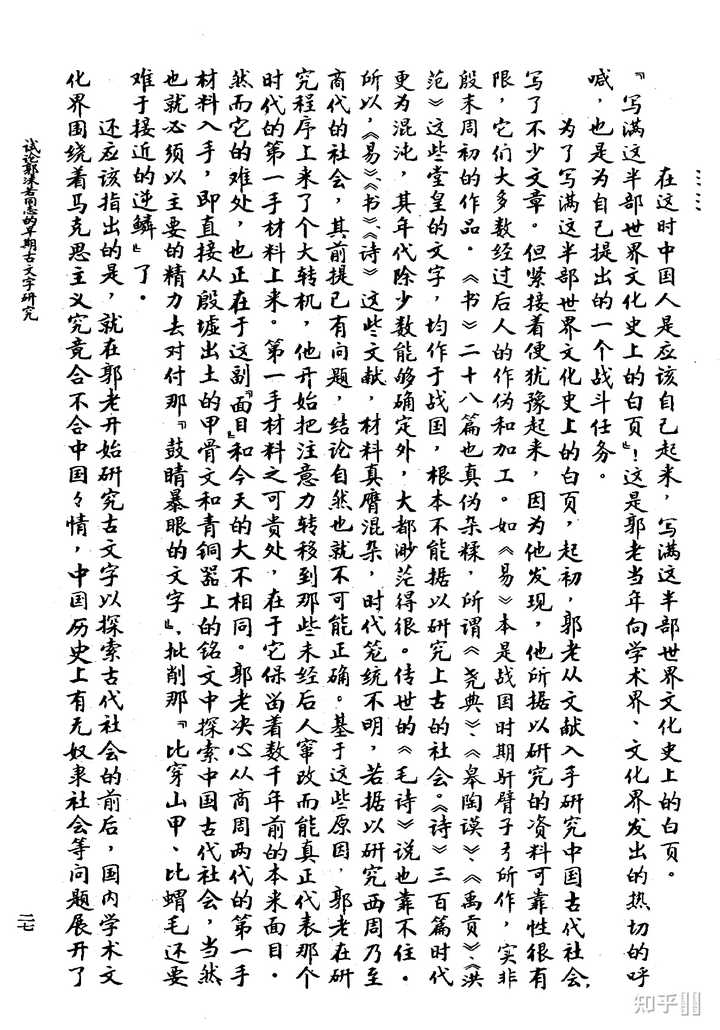 ……
在这时中国人是应该自己起来，写满这半部世界文化史上的白页。
『写满这半部世界文化史上的白页』！这是郭老当年向学术界、文化界发出的热切的呼
喊，也是为自己提出的一个战斗任务。
为了写满这半部世界文化史上的白页，起初，郭老从文献入手研究中国古代社会，
写了不少文章。但紧接着便犹豫起来，因为他发现，他所据以研究的资料可靠性很有
限，它们大多数经过后人的作伪和加工。如《易》本是战国时期馯臂子弓所作，实非
殷末周初的作品。《书》二十八篇也真伪杂糅，所谓《尧典》、《皋陶谟》、《禹贡》、《洪
范》这些堂皇的文字，均作于战国，根本不能据以研究上古的社会。《诗》三百篇时代
更为混沌，其年代除少数能够确定外，大都渺茫得很。传世的《毛诗》说也靠不住。
所以，《易》、《书》、《诗》这些文献，材料真赝混杂，时代笼统不明，若据以研究西周乃至
商代的社会，其前提已有问题，结论自然也就不可能正确。基于这些原因，郭老在研
究程序上来了个大转机，他开始把注意力转移到那些未经后人窜改而能真正代表那个
时代的第一手材料上来。第一手材料之可贵处，在于它保留着数千年前的本来面目。
然而它的难处，也正在于这副『面目』和今天的大不相同。郭老决心从商周两代的第一手
材料入手，即直接从殷墟出土的甲骨文和青铜器上的铭文中探索中国古代社会，当然
也就必须以主要的精力去对付那『鼓睛暴眼的文字』、批削那『比穿山甲、比蝟毛还要
难于接近的逆鳞』了。
还应该指出的是，就在郭老开始研究古文字以探索古代社会的前后，国内学术文
化界围绕着马克思主义究竟合不合中国々情，中国历史上有无奴隶社会等问题展开了
试论郭沫若同志的早期古文字研究
二七
知乎